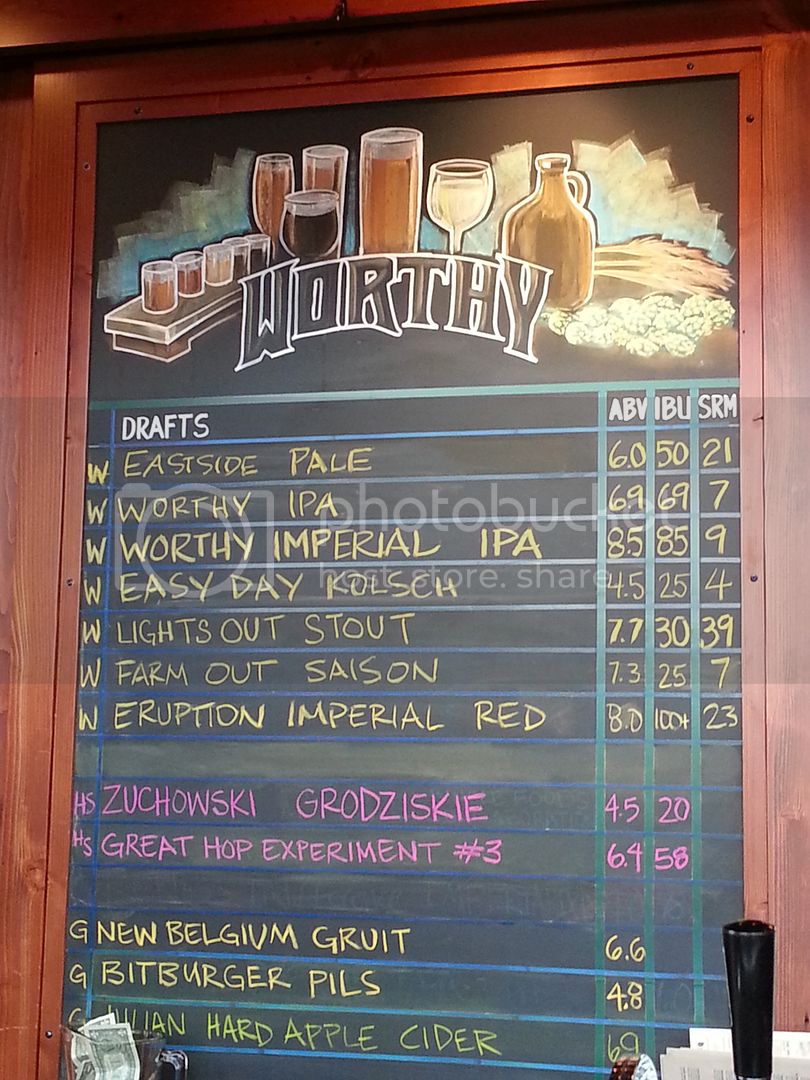 WORTHY
DRAFTS ABV IBU SRM
W EASTSIDE PALE 6.0 50 21
W WORTHY IPA 6.9 69 7
photobucket
W WORTHY IMPERIAL IPA 8.5 85 9
host. store. share.
W EASY DAY KOLSCH 4.5 25 4
W LIGHTS OUT STOUT 7.7 30 39
W FARM OUT SAISON 7.3 25 7
W ERUPTION IMPERIAL RED 8.0 100+ 23
HS ZUCHOWSKI GRODZISKIE 4.5 20
HS GREAT HOP EXPERIMENT #3 6.4 58
G NEW BELGIUM GRUIT 6.6
G BITBURGER PILS 4.8
HARD APPLE CIDER 6.9